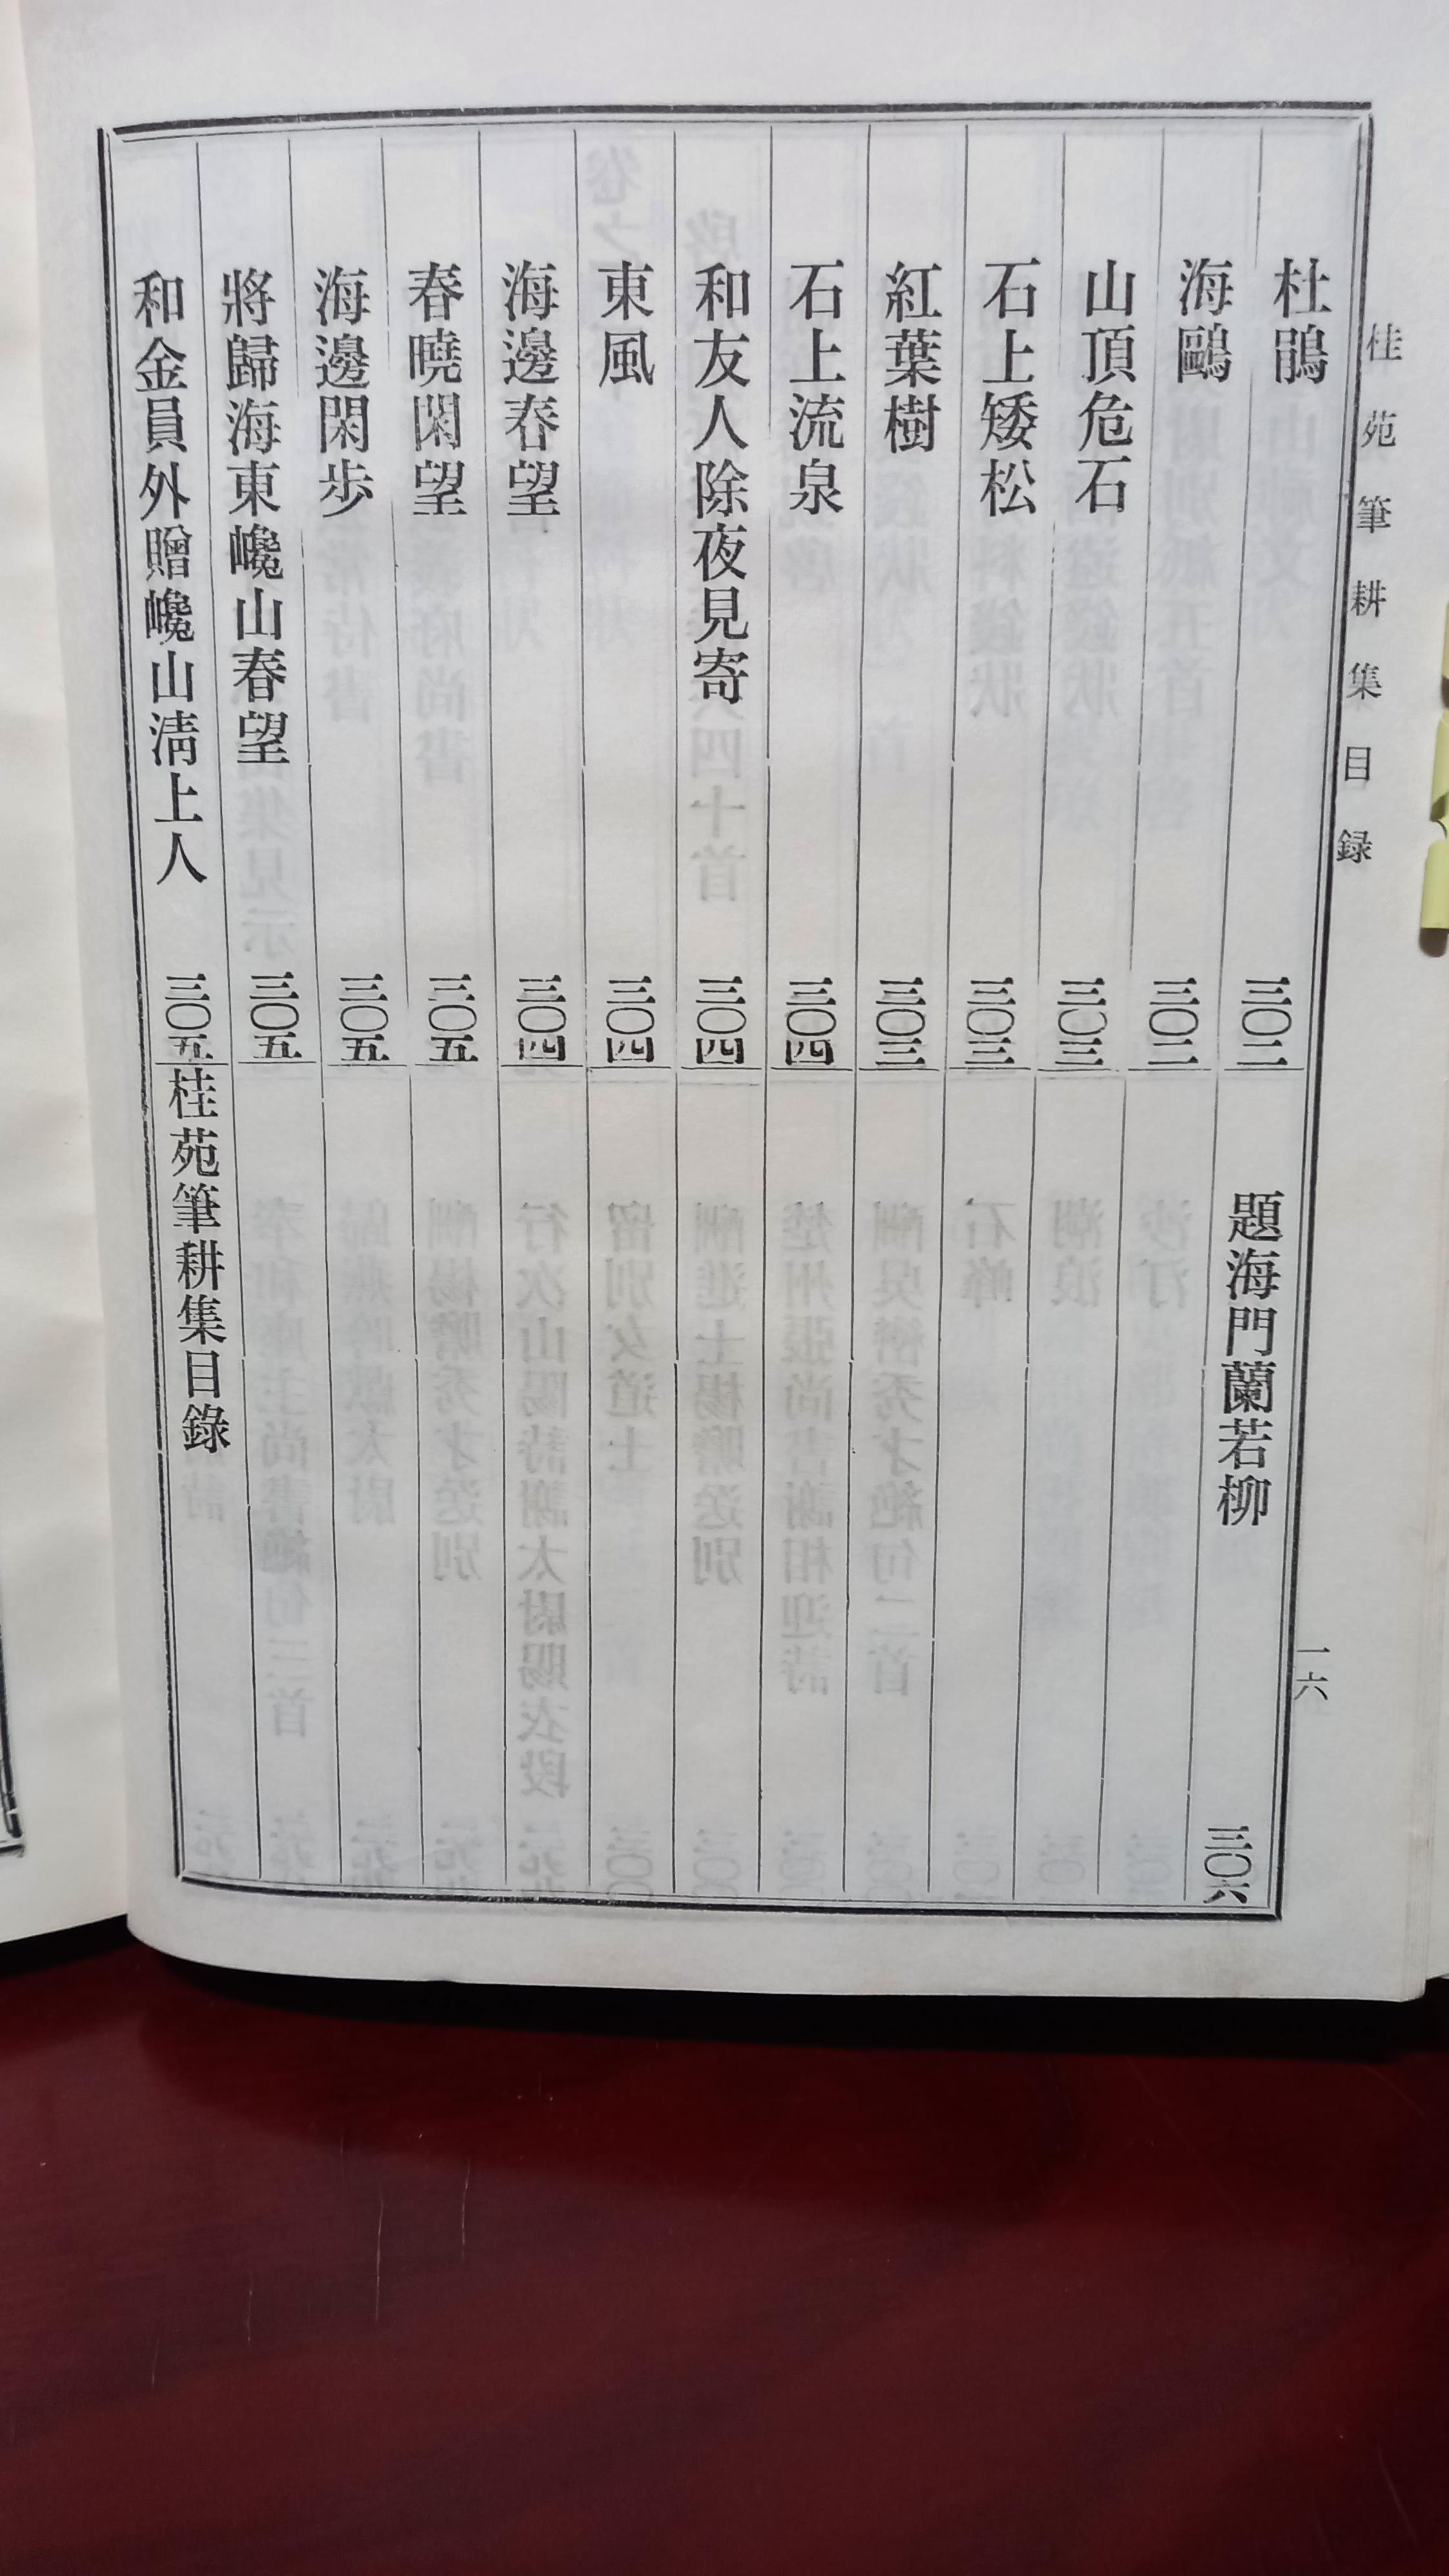 桂苑筆耕集目録
一六
杜鵑 三〇二
海鷗 三〇二
山頂危石 三〇三
石上矮松 三〇三
紅葉樹 三〇三
石上流泉 三〇四
和友人除夜見寄 三〇四
東風 三〇四
海邊春望 三〇四
春曉閑望 三〇五
海邊閑步 三〇五
將歸海東巉山春望 三〇五
和金員外贈巉山淸上人 三〇五
題海門蘭若柳 三〇六
桂苑筆耕集目錄